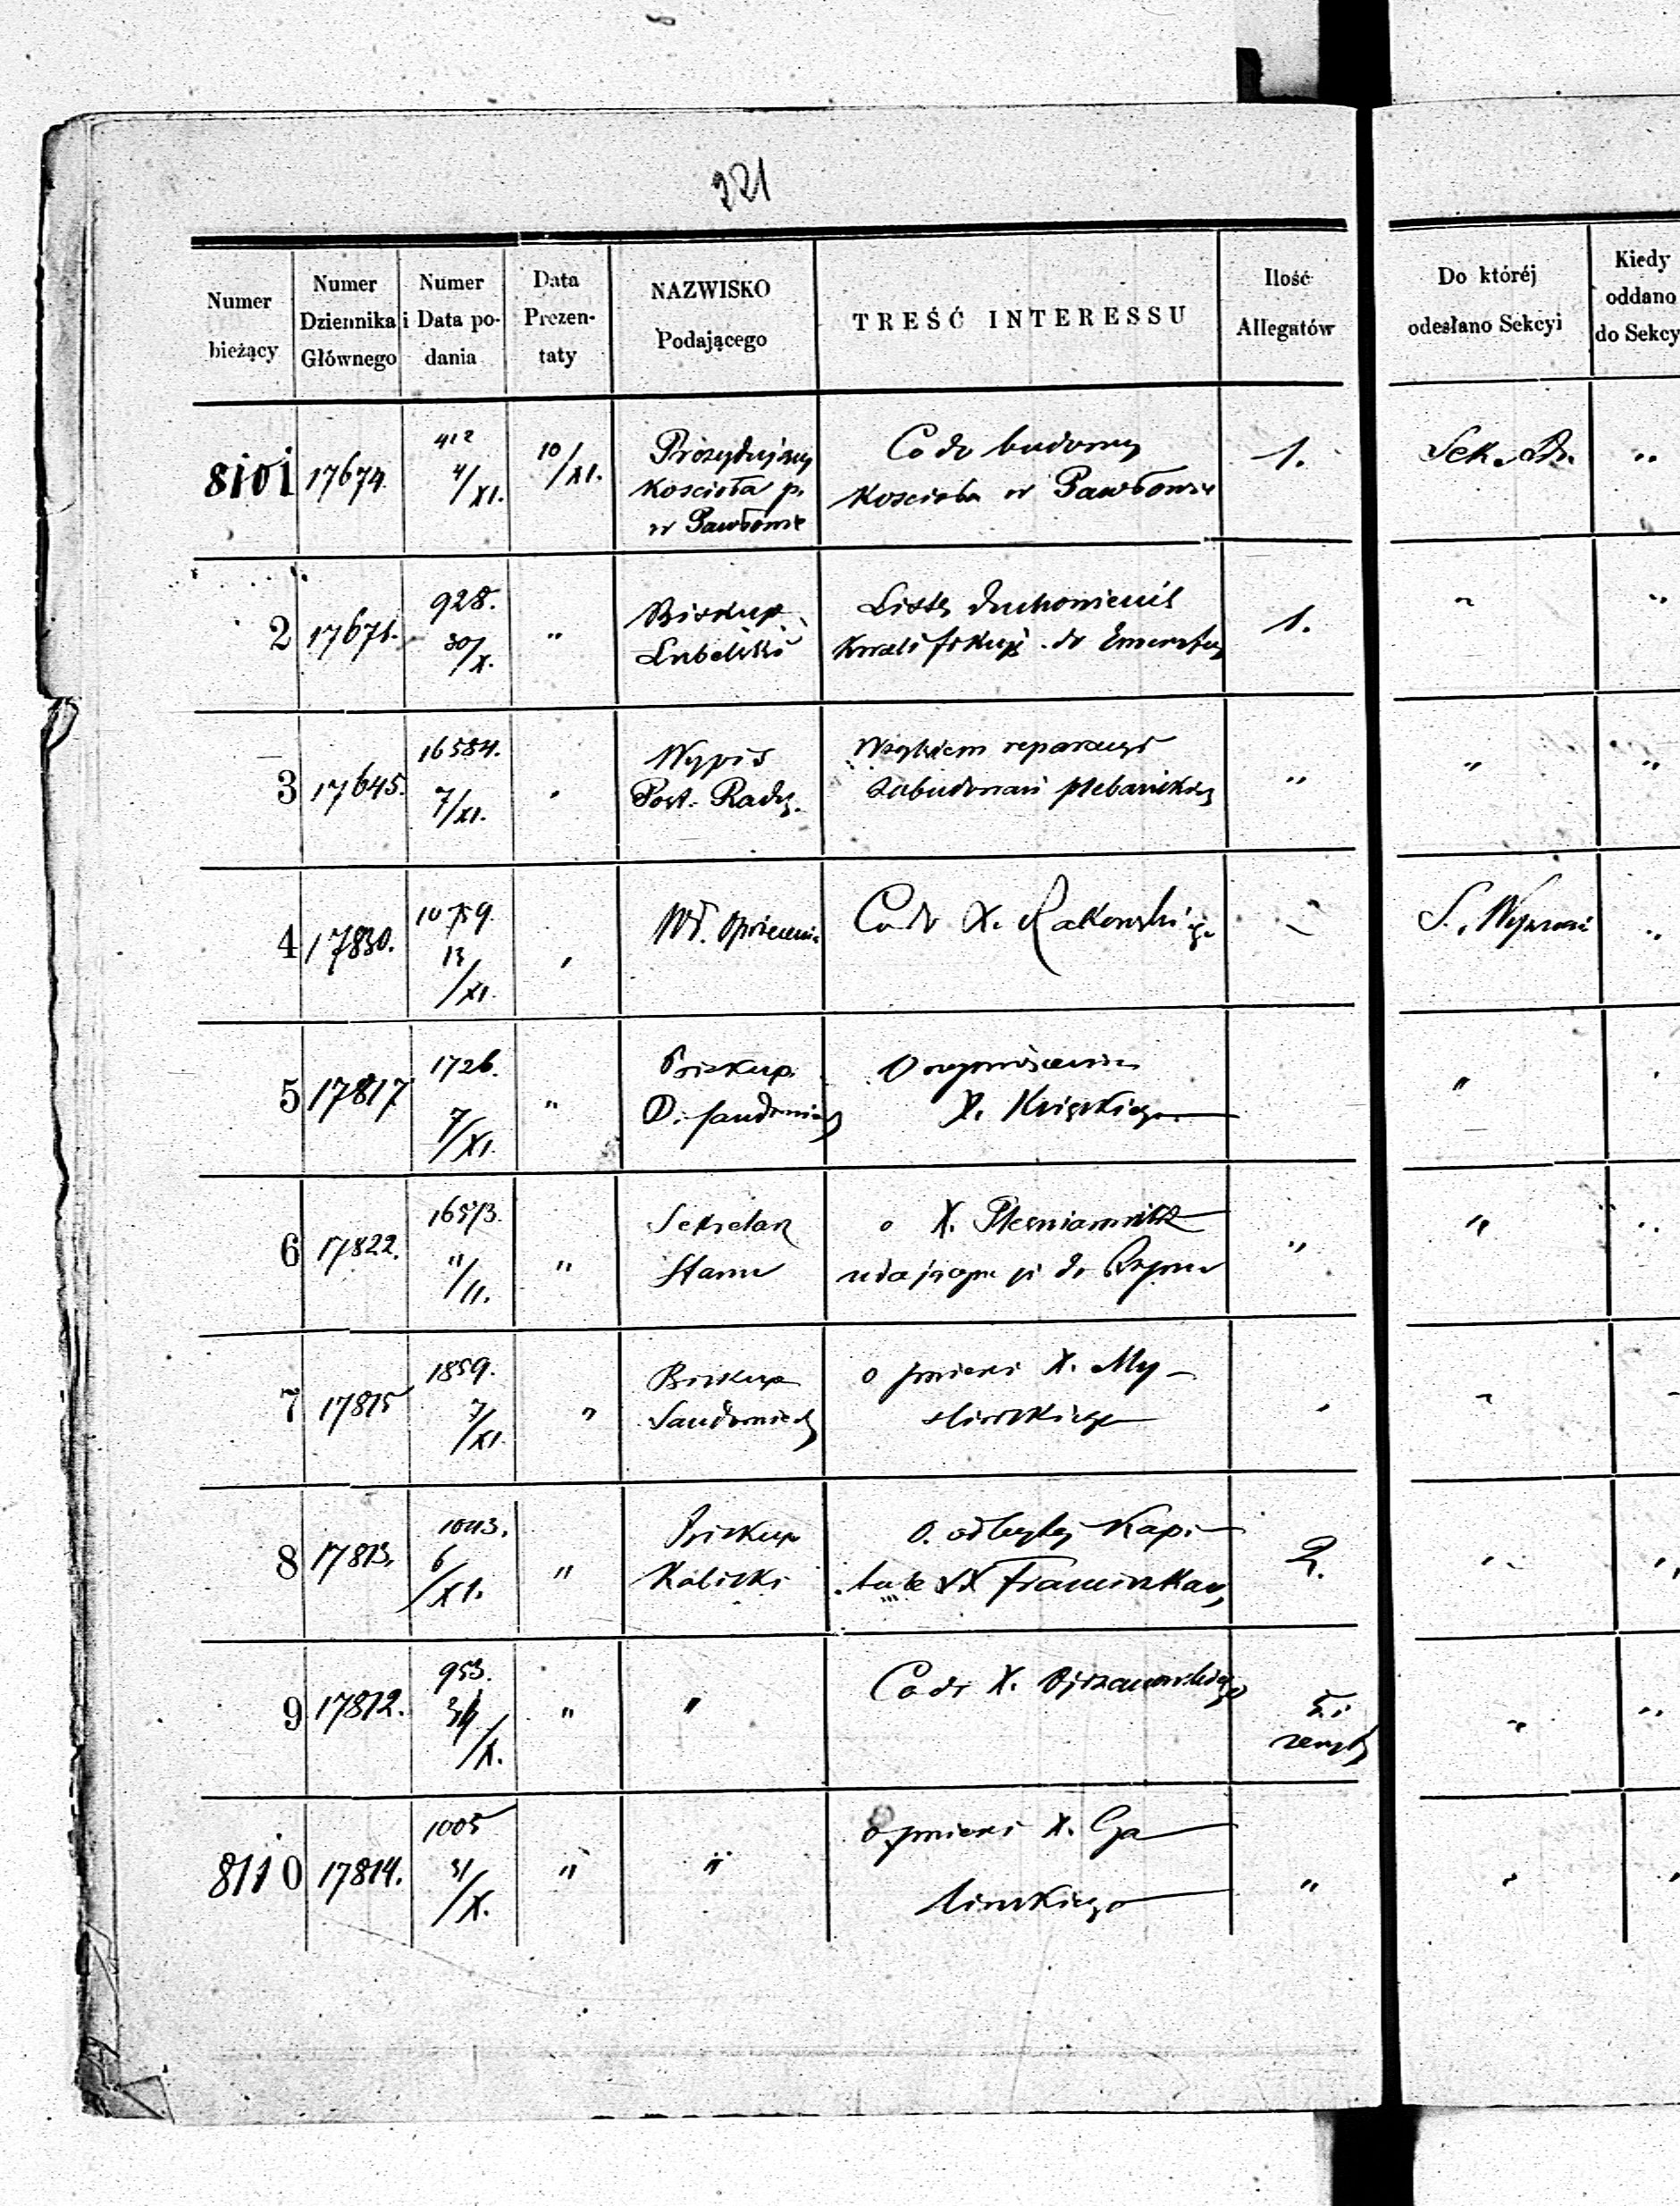 221
Numer bieżący
Numer Dziennika Głównego
Numer i Data podania
Data Prezentaty
NAZWISKO Podającego
TREŚĆ INTERESSU
Ilość Allegatów
Do któréj odesłano Sekcyi
Kiedy oddano do Sekcy
8101 17674. 412 4/XI. 10/XI. Prezydujący Co do budowy 1. Sek. "
Kościoła p. Kościoła w Pawłowie
w Pawłowie
2 17671. 928. 30/X. " Biskup Listy duchownych 1. " "
Lubelski kwalifikują. do Emerytury
3 17645. 16584. 7/XI. " Wypis Względem reparacyi " " "
Post. Rady. zabudowań plebańskich
4 17830. 1079. 13/XI. " Wł. Co do X. Rakowskiego " S. Wyznań "
5 17817 1726. 7/XI. " Biskup O
D. Sandomier X.
6 17822. 16573. 11/11. " Sekretarz o X. " " "
Stanu udającym się do Rzymu
7 17815 1859. 7/XI. " Biskup o śmierci X. My- " " "
Sandomiersk śliwskiego
8 17813. 1043. 6/XI. " Biskup O odbytej Kapi- 2. " "
Kaliski tule XX Franciszkan
9 17812. 953. 31/X. " " Co do X. 5. i " "
zeszyt
8110 17814. 1005 31/X. " " o śmierci X. Ga- " " "
lińskiego